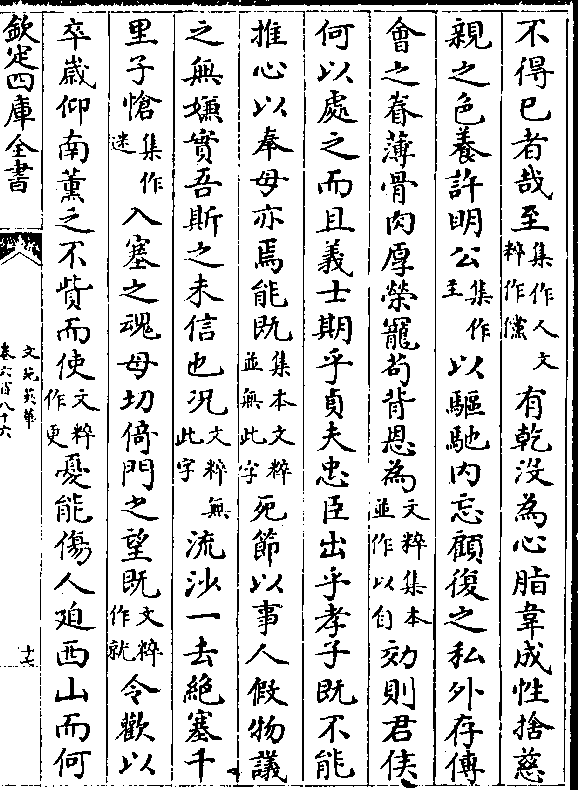 不得已者哉至集作人文粹作儻有乾没為心脂韋成性捨慈
親之色養許明公集作至以驅馳内忘顧復之私外存傅
會之眷薄骨肉厚榮寵苟背恩為文粹集本並作以自効則君侯
何以處之而且義士期乎貞夫忠臣出乎孝子既不能
推心以奉母亦焉能既集本文粹並無此字死節以事人假物議
之無嫌實吾斯之未信也况文粹無此字流沙一去絶塞千
里子愴集作迷入塞之魂母切倚門之望既文粹作就令歡以
卒歳仰南薰之不貲而使文粹作更憂能傷人廹西山而何
欽定四庫全書
文苑英華
卷六百八十六
十七